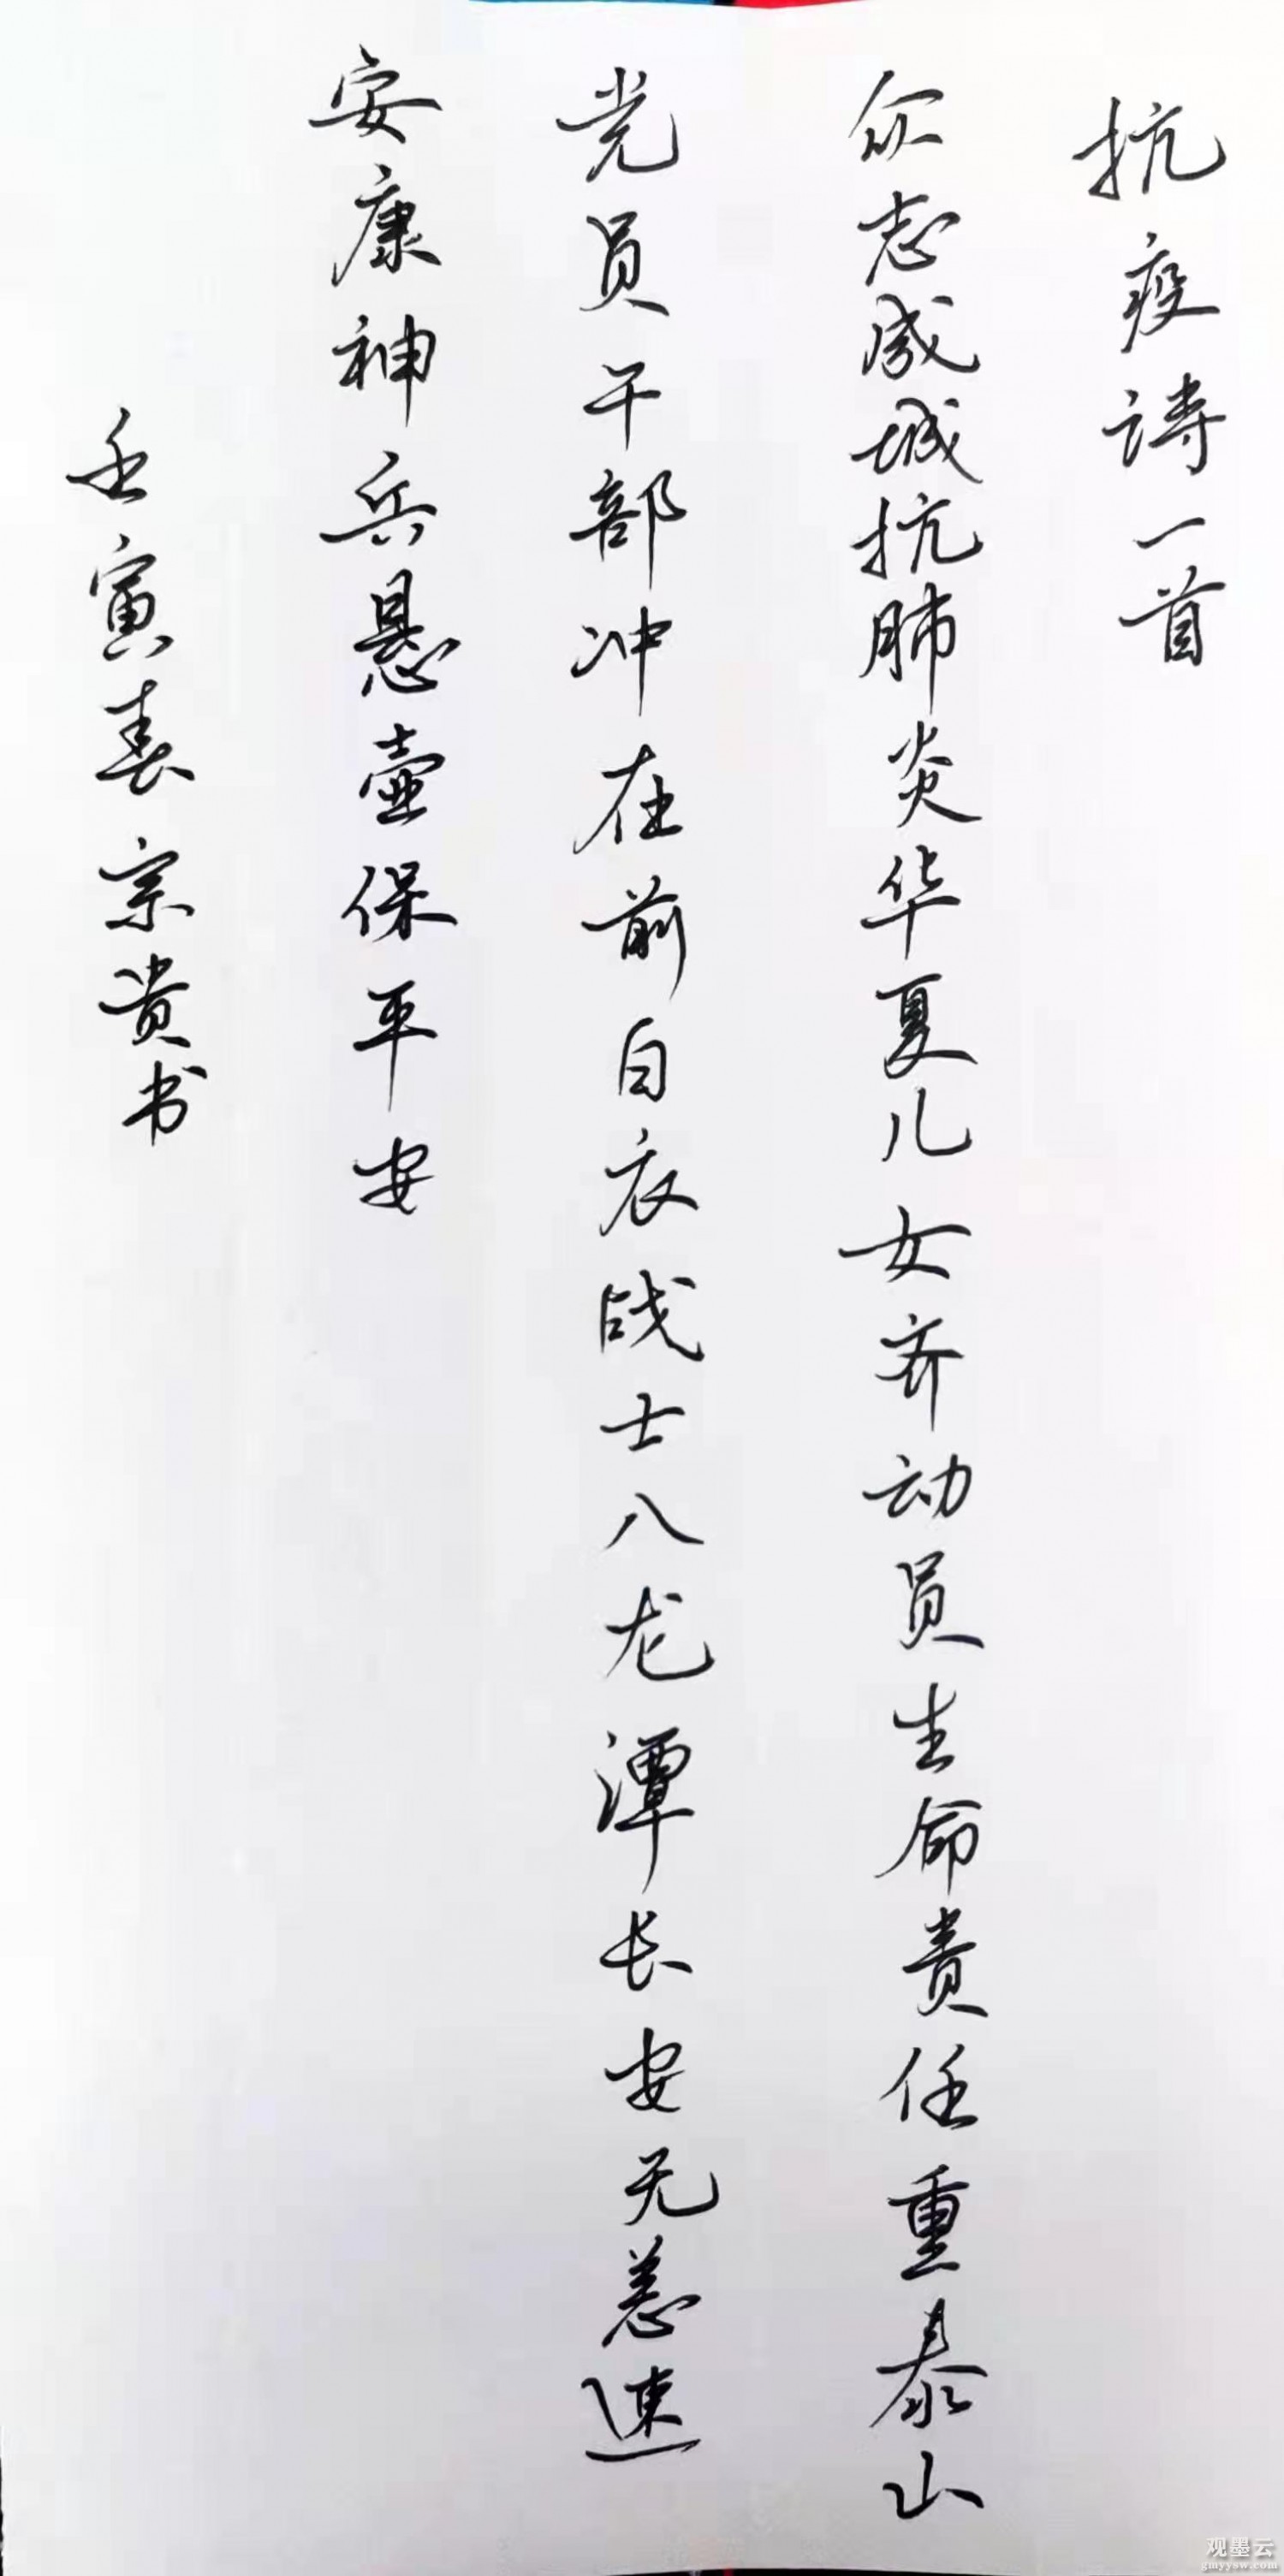 抗疫诗一首
众志成城抗肺炎华夏儿女齐动员生命责任重泰山
党员干部冲在前白衣战士入龙潭长安无恙速
安康神兵悬壶保平安
壬寅春宗贵书
观墨云
gmyysw.com